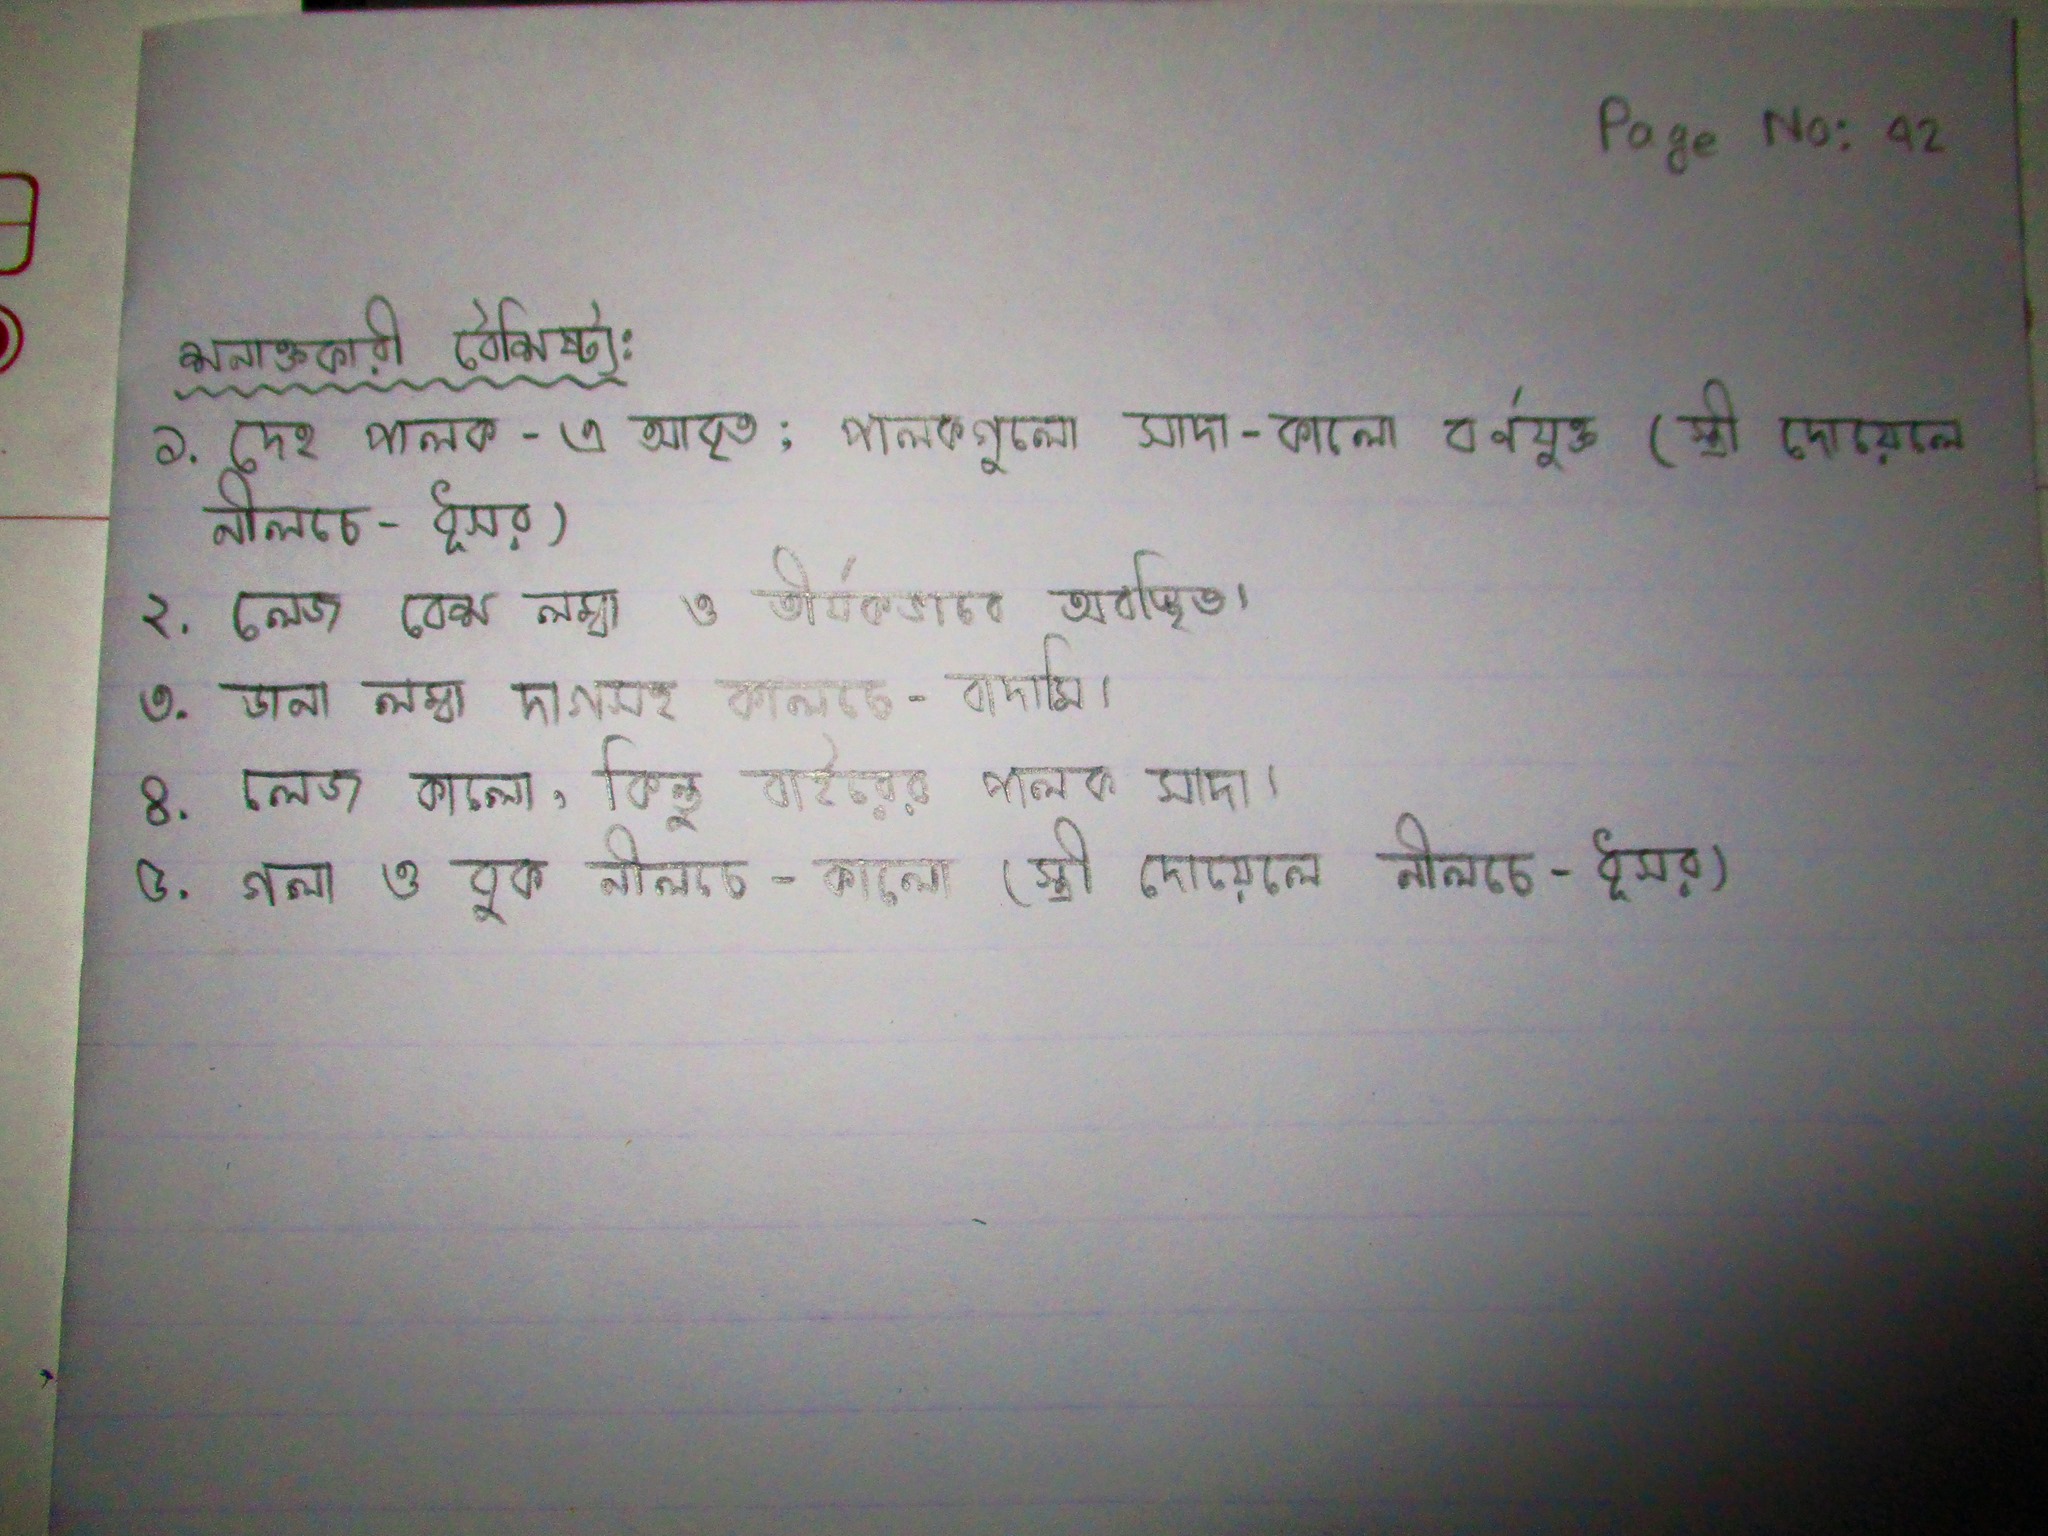 Page No: 42
শনাক্তকারী বৈশিষ্ট্য:
১. দেহ পালক - এ আবৃত ; পালকগুলো সাদা - কালো বর্ণযুক্ত ( স্ত্রী দোয়েলে
নীলচে - ধূসর )
২. লেজ বেশ লম্বা ও তীর্যকভাবে অবস্থিত।
৩. ডানা লম্বা দাগসহ কালচে - বাদামি।
৪. লেজ কালো, কিন্তু বাইরের পালক সাদা।
৫. গলা ও বুক নীলচে - কালো ( স্ত্রী দোয়েলে নীলচে - ধূসর )